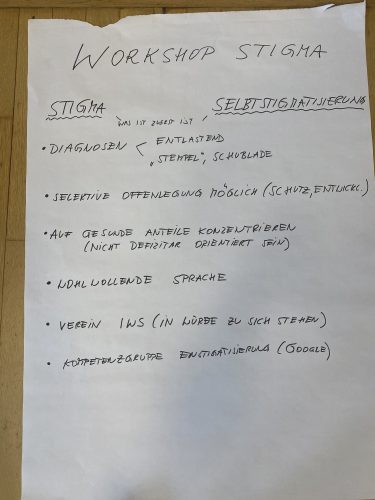 WORKSHOP STIGMA
STIGMA WAS IST ZUERST IST, SELBSTSTIGMATISIERUNG
• DIAGNOSEN < ENTLASTEND
„STEMPEL", SCHUBLADE
• SELEKTIVE OFFENLEGUNG MÖGLICH (SCHUTZ, ENTWICKL.)
• AUF GESUNDE ANTEILE KONZENTRIEREN
(NICHT DEFIZITÄR ORIENTIERT SEIN)
• WOHLWOLLENDE SPRACHE
• VEREIN IWS (IN WÜRDE ZU SICH STEHEN)
• KOMPETENZGRUPPE ENTSTIGMATISIERUNG (GOOGLE)